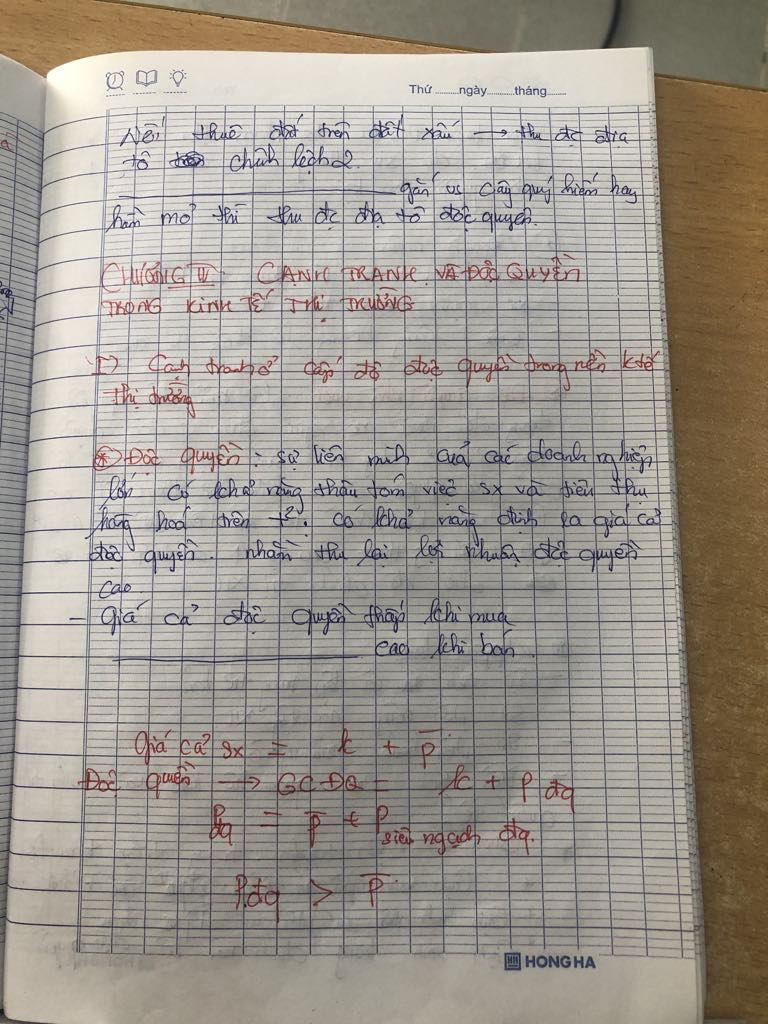 Thứ ..........ngày..........tháng.......
Nếu thuê đất trên đất xấu → thu đc địa
tô chênh lệch 2.
gắn vs cây quý hiếm hay
hầm mỏ thì thu đc địa tô độc quyền.
CHƯƠNG IV CẠNH TRANH VÀ ĐỘC QUYỀN
TRONG KINH TẾ THỊ TRƯỜNG
I) Cạnh tranh ở cấp độ độc quyền trong nền ktế
thị trường
* Độc quyền: sự liên minh của các doanh nghiệp
lớn có khả năng thâu tóm việc sx và tiêu thụ
hàng hoá trên t². có khả năng định ra giá cả
độc quyền. nhằm thu lại lợi nhuận độc quyền
cao.
- Giá cả độc quyền thấp khi mua
cao khi bán.
Giá cả sx = k + p̅
Độc quyền → GCĐQ = k + P đq
Pđq = p̅ + P siêu ngạch đq.
P.đq > p̅
HH HONG HA